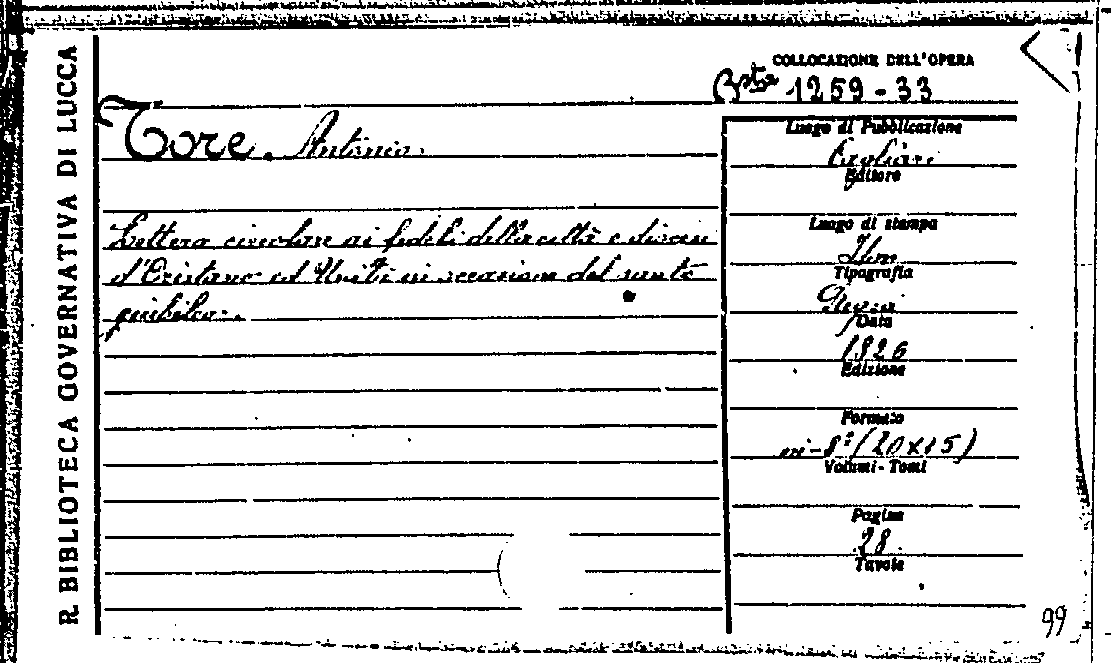 R. BIBLIOTECA GOVERNATIVA DI LUCCA
COLLOCAZIONE DELL'OPERA
Bsta 1259-33
Tore. Antonio.
Lettera circolare ai fedeli della città e diocesi
d'Oristano ed Uniti in occasione del santo
giubileo.
Luogo di Pubblicazione
Cagliari
Editore
Luogo di stampa
Idem
Tipografia
Data
1826
Edizione
Formato
in-8º (20x15)
Volumi - Tomi
Pagine
28.
Tavole
99